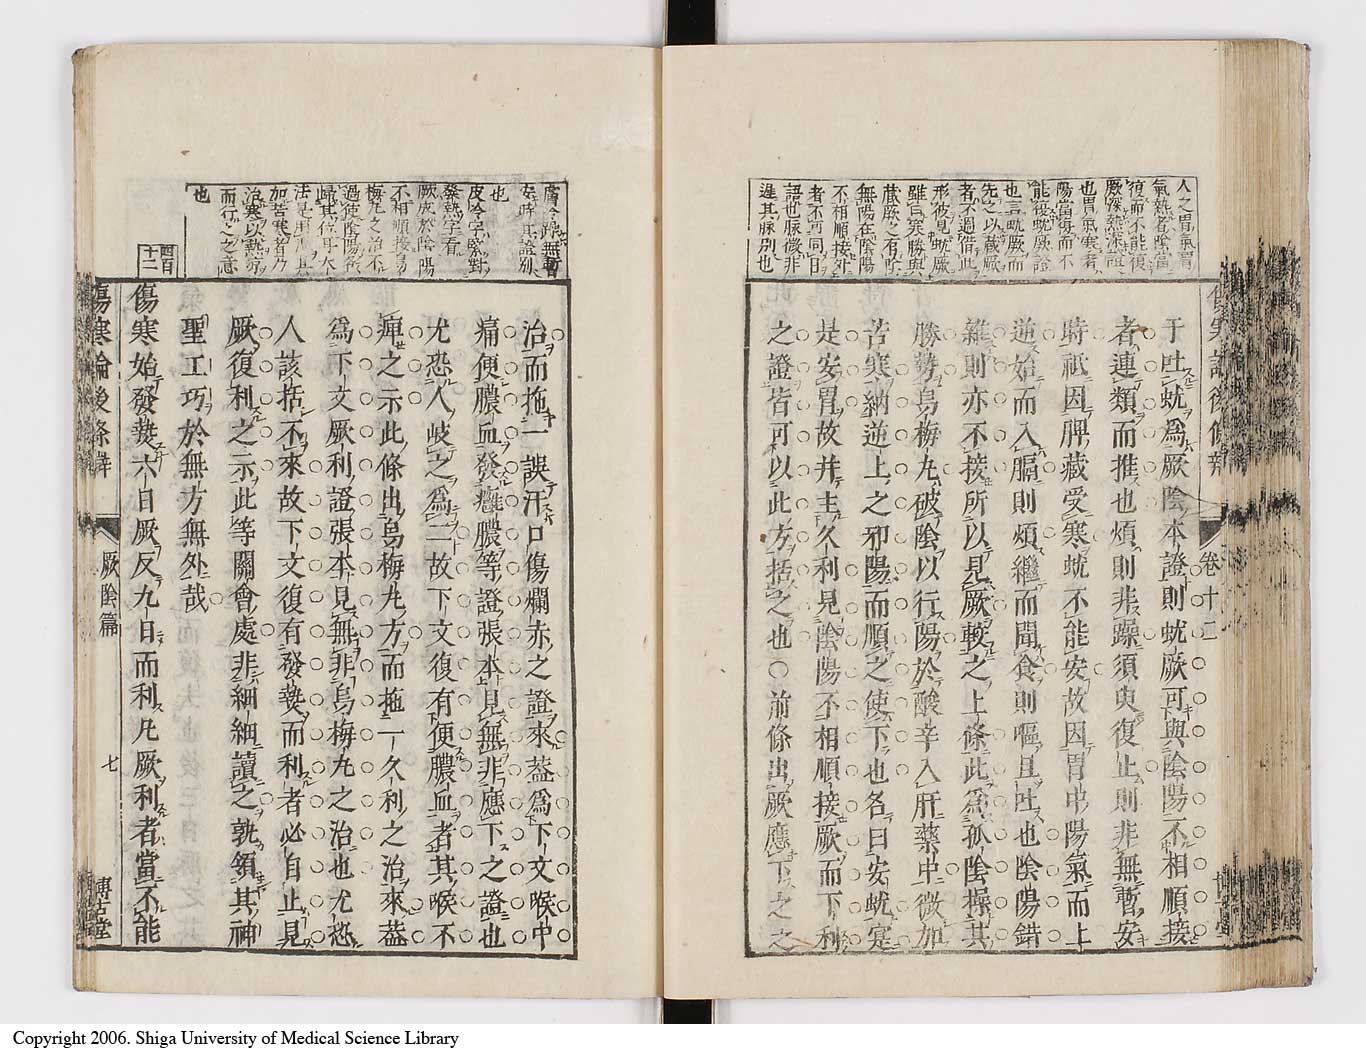 人之胃氣胃
氣熱者陰當
復而不能復
厥深熱深證
也胃氣寒者
陽當復而不
能復蚘厥證
也言蚘厥而
先之以藏厥
者不過借此
形彼見蚘厥
雖曰寒勝與
藏厥之有陰
無陽在陰陽
不相順接外
者不可同日
語也脉微非
遲其脉別也
傷寒論後條辨
卷十二
于吐蚘爲厥陰本證則蚘厥可與陰陽不相順接
者連類而推也煩則非躁須臾復止則非無暫安
時祇因脾藏受寒蚘不能安故因胃中陽氣而上
逆始而入膈則煩繼而聞食則嘔且吐也陰陽錯
雜則亦不接所以見厥較之上條此爲孤陰操其
勝勢烏梅丸破陰以行陽於酸辛入肝藥中微加
苦寒納逆上之邪陽而順之使下也名曰安蚘寔
是安胃故并主久利見陰陽不相順接厥而下利
之證皆可以此方括之也○前條出厥應下之之
膚冷躁無暫
安時其證別
也
皮冷字緊對
發熱字看
厥成於陰陽
不相順接烏
梅丸之治不
過使陰陽各
歸其位耳大
法是用溫其
加苦寒者乃
治寒以熱凉
而行之之意
也
四百
十二
治而拖一誤汗口傷爛赤之證來葢爲下文喉中
痛便膿血發癰膿等證張本見無非應下之證也
尤恐人岐之爲二故下文復有便膿血者其喉不
痺之示此條出烏梅丸方而拖一久利之治來葢
爲下文厥利證張本見無非烏梅丸之治也尤恐
人該括不來故下文復有發熱而利者必自止見
厥復利之示此等關會處非細細讀之孰領其神
聖工巧於無方無外哉
傷寒始發熱六日厥反九日而利凡厥利者當不能
傷寒論後條辨
厥陰篇
七
博古堂
Copyright 2006. Shiga University of Medical Science Library